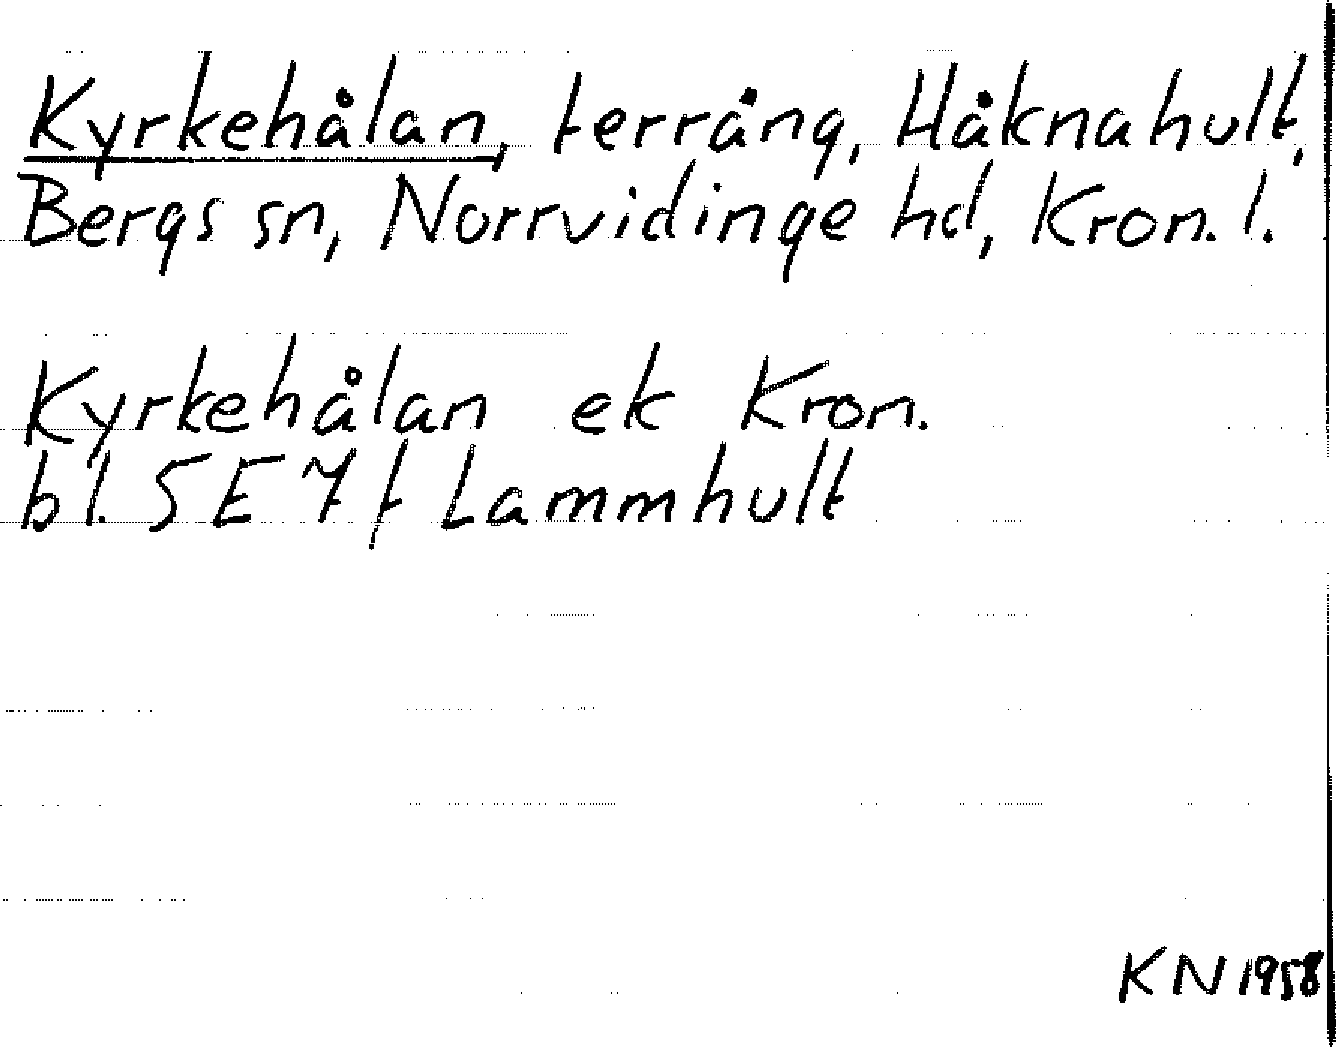 Kyrkehålan, terräng, Håknahult,
Bergs sn, Norrvidinge hd, Kron. l.
Kyrkehålan ek Kron.
bl. 5E7f Lammhult
KN 1958